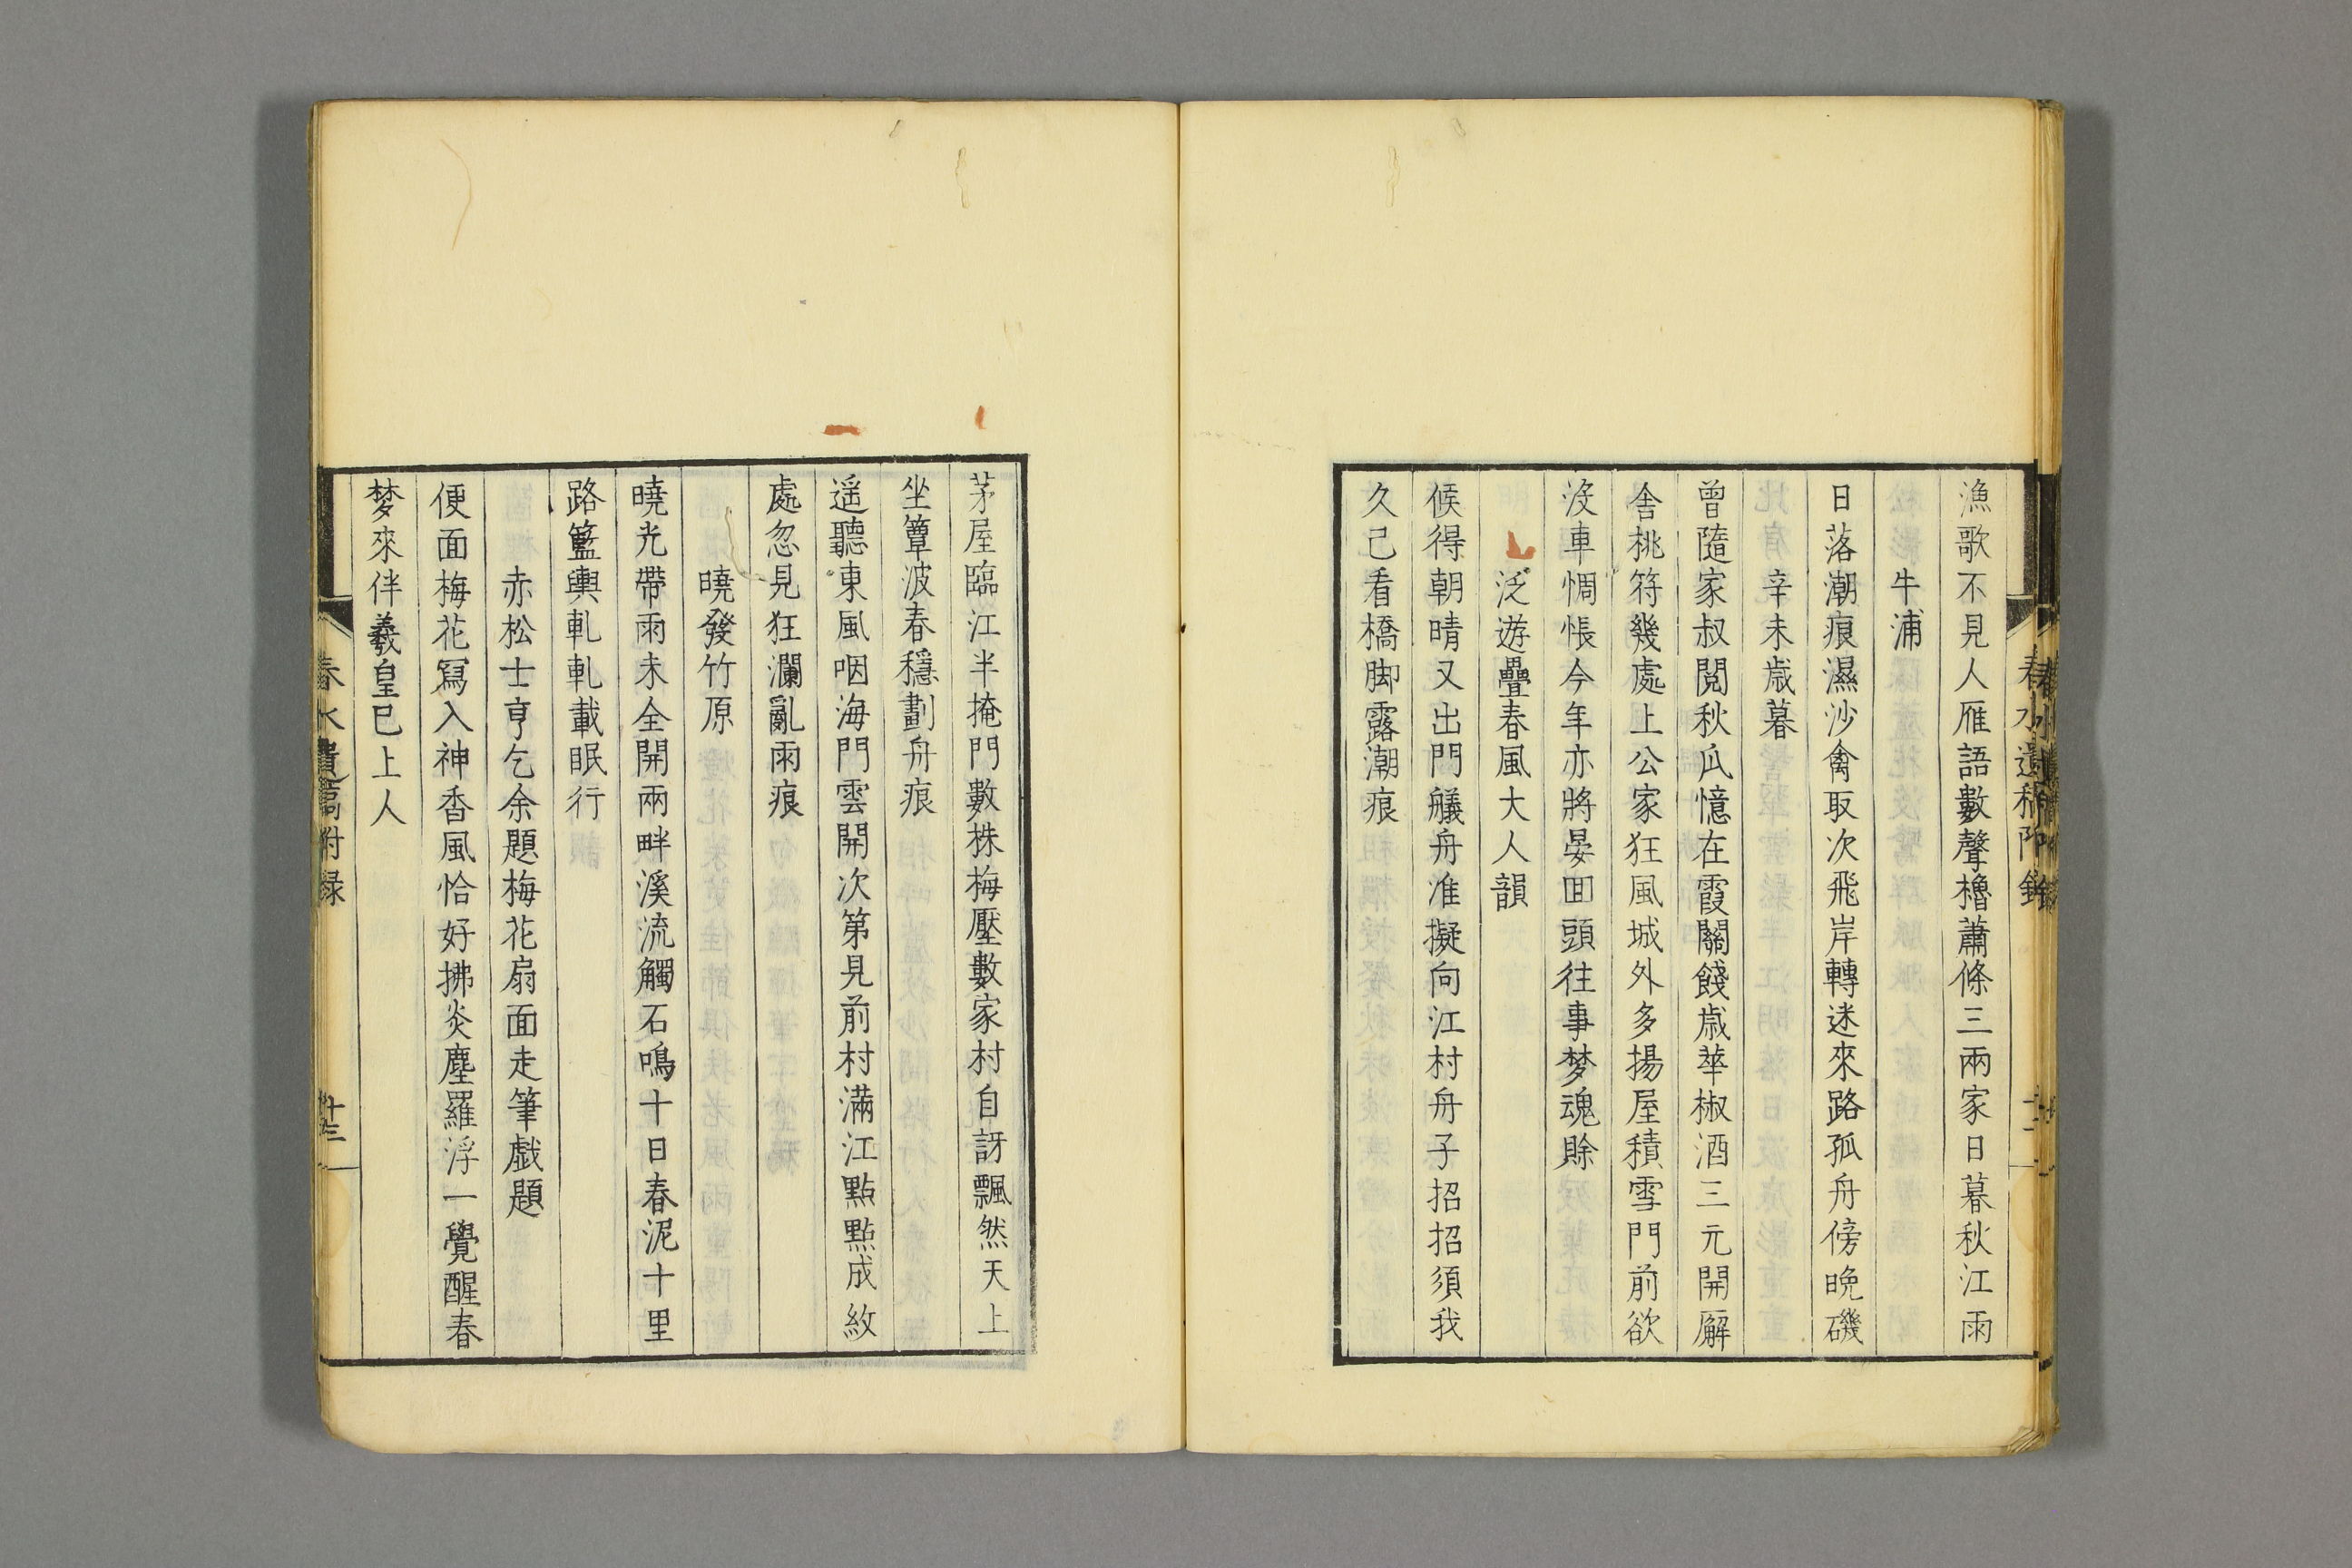 漁歌不見人雁語數聲櫓蕭條三兩家日暮秋江雨
牛浦
日落潮痕濕沙禽取次飛岸轉迷來路孤舟傍晩磯
辛未歲暮
曾隨家叔閲秋瓜憶在霞關餞歲華椒酒三元開廨
舍桃符幾處上公家狂風城外多揚屋積雪門前欲
沒車惆悵今年亦將晏囬頭往事梦魂賖
泛遊疊春風大人韻
候得朝晴又出門艤舟准擬向江村舟子招招須我
久己看橋脚露潮痕
茅屋臨江半掩門數株梅壓數家村自訝飄然天上
坐簟波春穩劃舟痕
遥聽東風咽海門雲開次第見前村滿江點點成紋
處忽見狂瀾亂雨痕
曉發竹原
曉光帶雨未全開兩畔溪流觸石鳴十日春泥十里
路籃輿軋軋載眠行
赤松士亨乞余題梅花扇面走筆戯題
便面梅花寫入神香風恰好拂炎塵羅浮一覺醒春
梦來伴羲皇巳上人
春水遺稿附録
十三